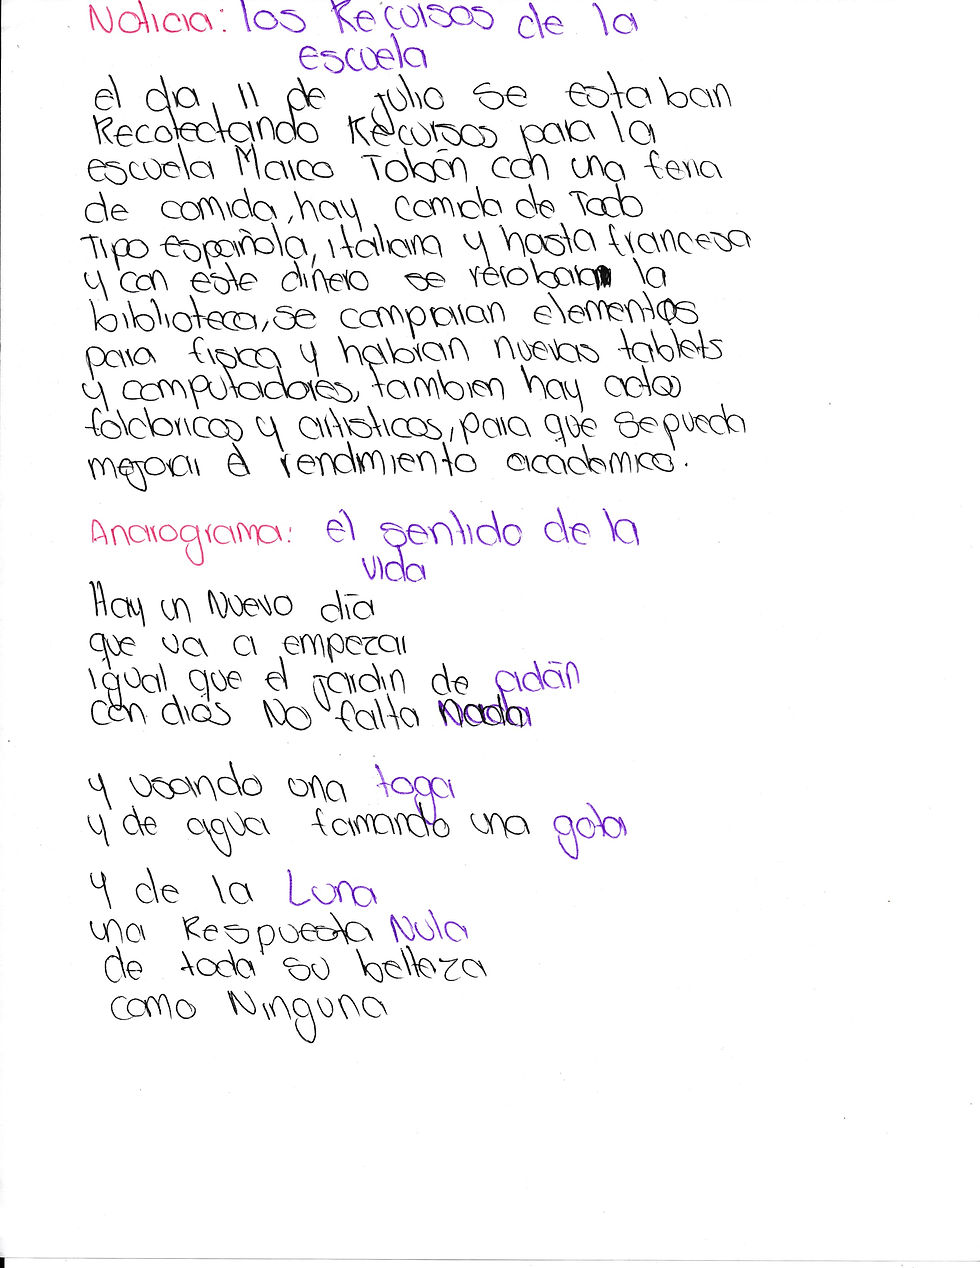 Noticia: los Recursos de la
escuela
el dia, 11 de julio se estaban
Recolectando Recursos para la
escuela Marco Tobón con una feria
de comida, hay comida de Todo
Tipo española, italiana y hasta francesa
y con este dinero se
la
biblioteca, se compraran elementos
para fisica y habran nuevas tablets
y computadores, tambien hay actos
folcloricos y artisticos, para que se pueda
mejorar el rendimiento academico.
Anarograma: el sentido de la
vida
Hay un Nuevo día
que va a empezar
igual que el jardin de adán
con diós No falta Nada
y usando una toga
y de agua tomando una gota
y de la Luna
una Respuesta Nula
de toda su belleza
como Ninguna